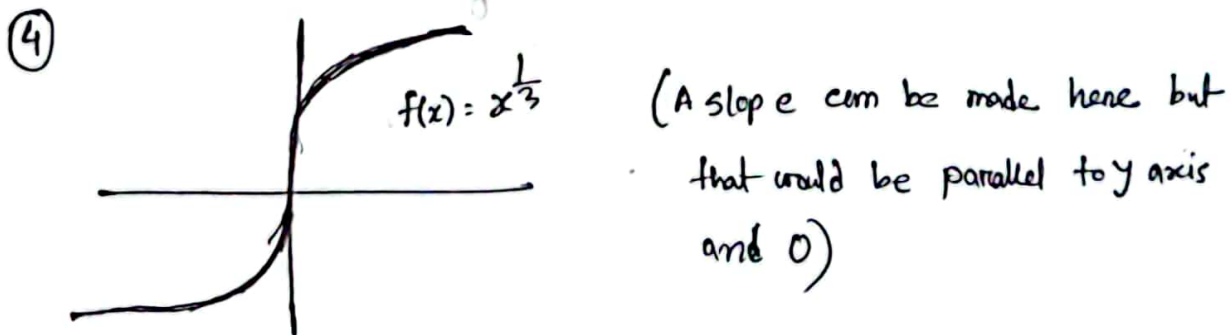 ④
f(x) = x^{1/3}
(A slope can be made here but
that would be parallel to y axis
and 0)